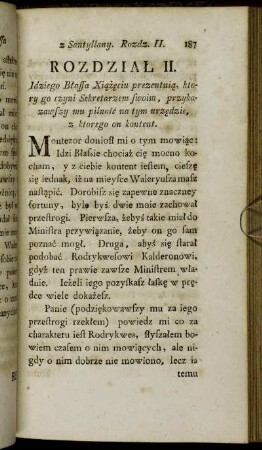 z Santyllany. Rozdz. II. 187
ROZDZIAŁ II.
Idziego Błassa Xiążęciu prezentuią, kto-
ry go czyni Sekretarzem swoim, przyka-
zawszy mu pilność na tym urzędzie,
z ktorego on kontent.
Montezor doniosł mi o tym mowiąc:
Idzi Błasie chociaż cię mocno ko-
cham, y z ciebie kontent iestem, cieszę
się iednak, iż na mieysce Waleryusza masz
nastąpić. Dorobisz się zapewne znaczney
fortuny, byle byś dwie mnie zachował
przestrogi. Pierwsza, żebyś takie miał do
Ministra przywiązanie, żeby on go sam
poznać mogł. Druga, abyś się starał
podobać Rodrykwesowi Kalderonowi,
gdyż ten prawie zawsze Ministrem wła-
dnie. Ieżeli iego pozyskasz łaskę w prę-
dce wiele dokażesz.
Panie (podziękowawszy mu za iego
przestrogi rzekłem) powiedz mi co za
charakteru iest Rodrykwes, słyszałem bo-
wiem czasem o nim mowiących, ale ni-
gdy o nim dobrze nie mowiono, lecz ia
temu